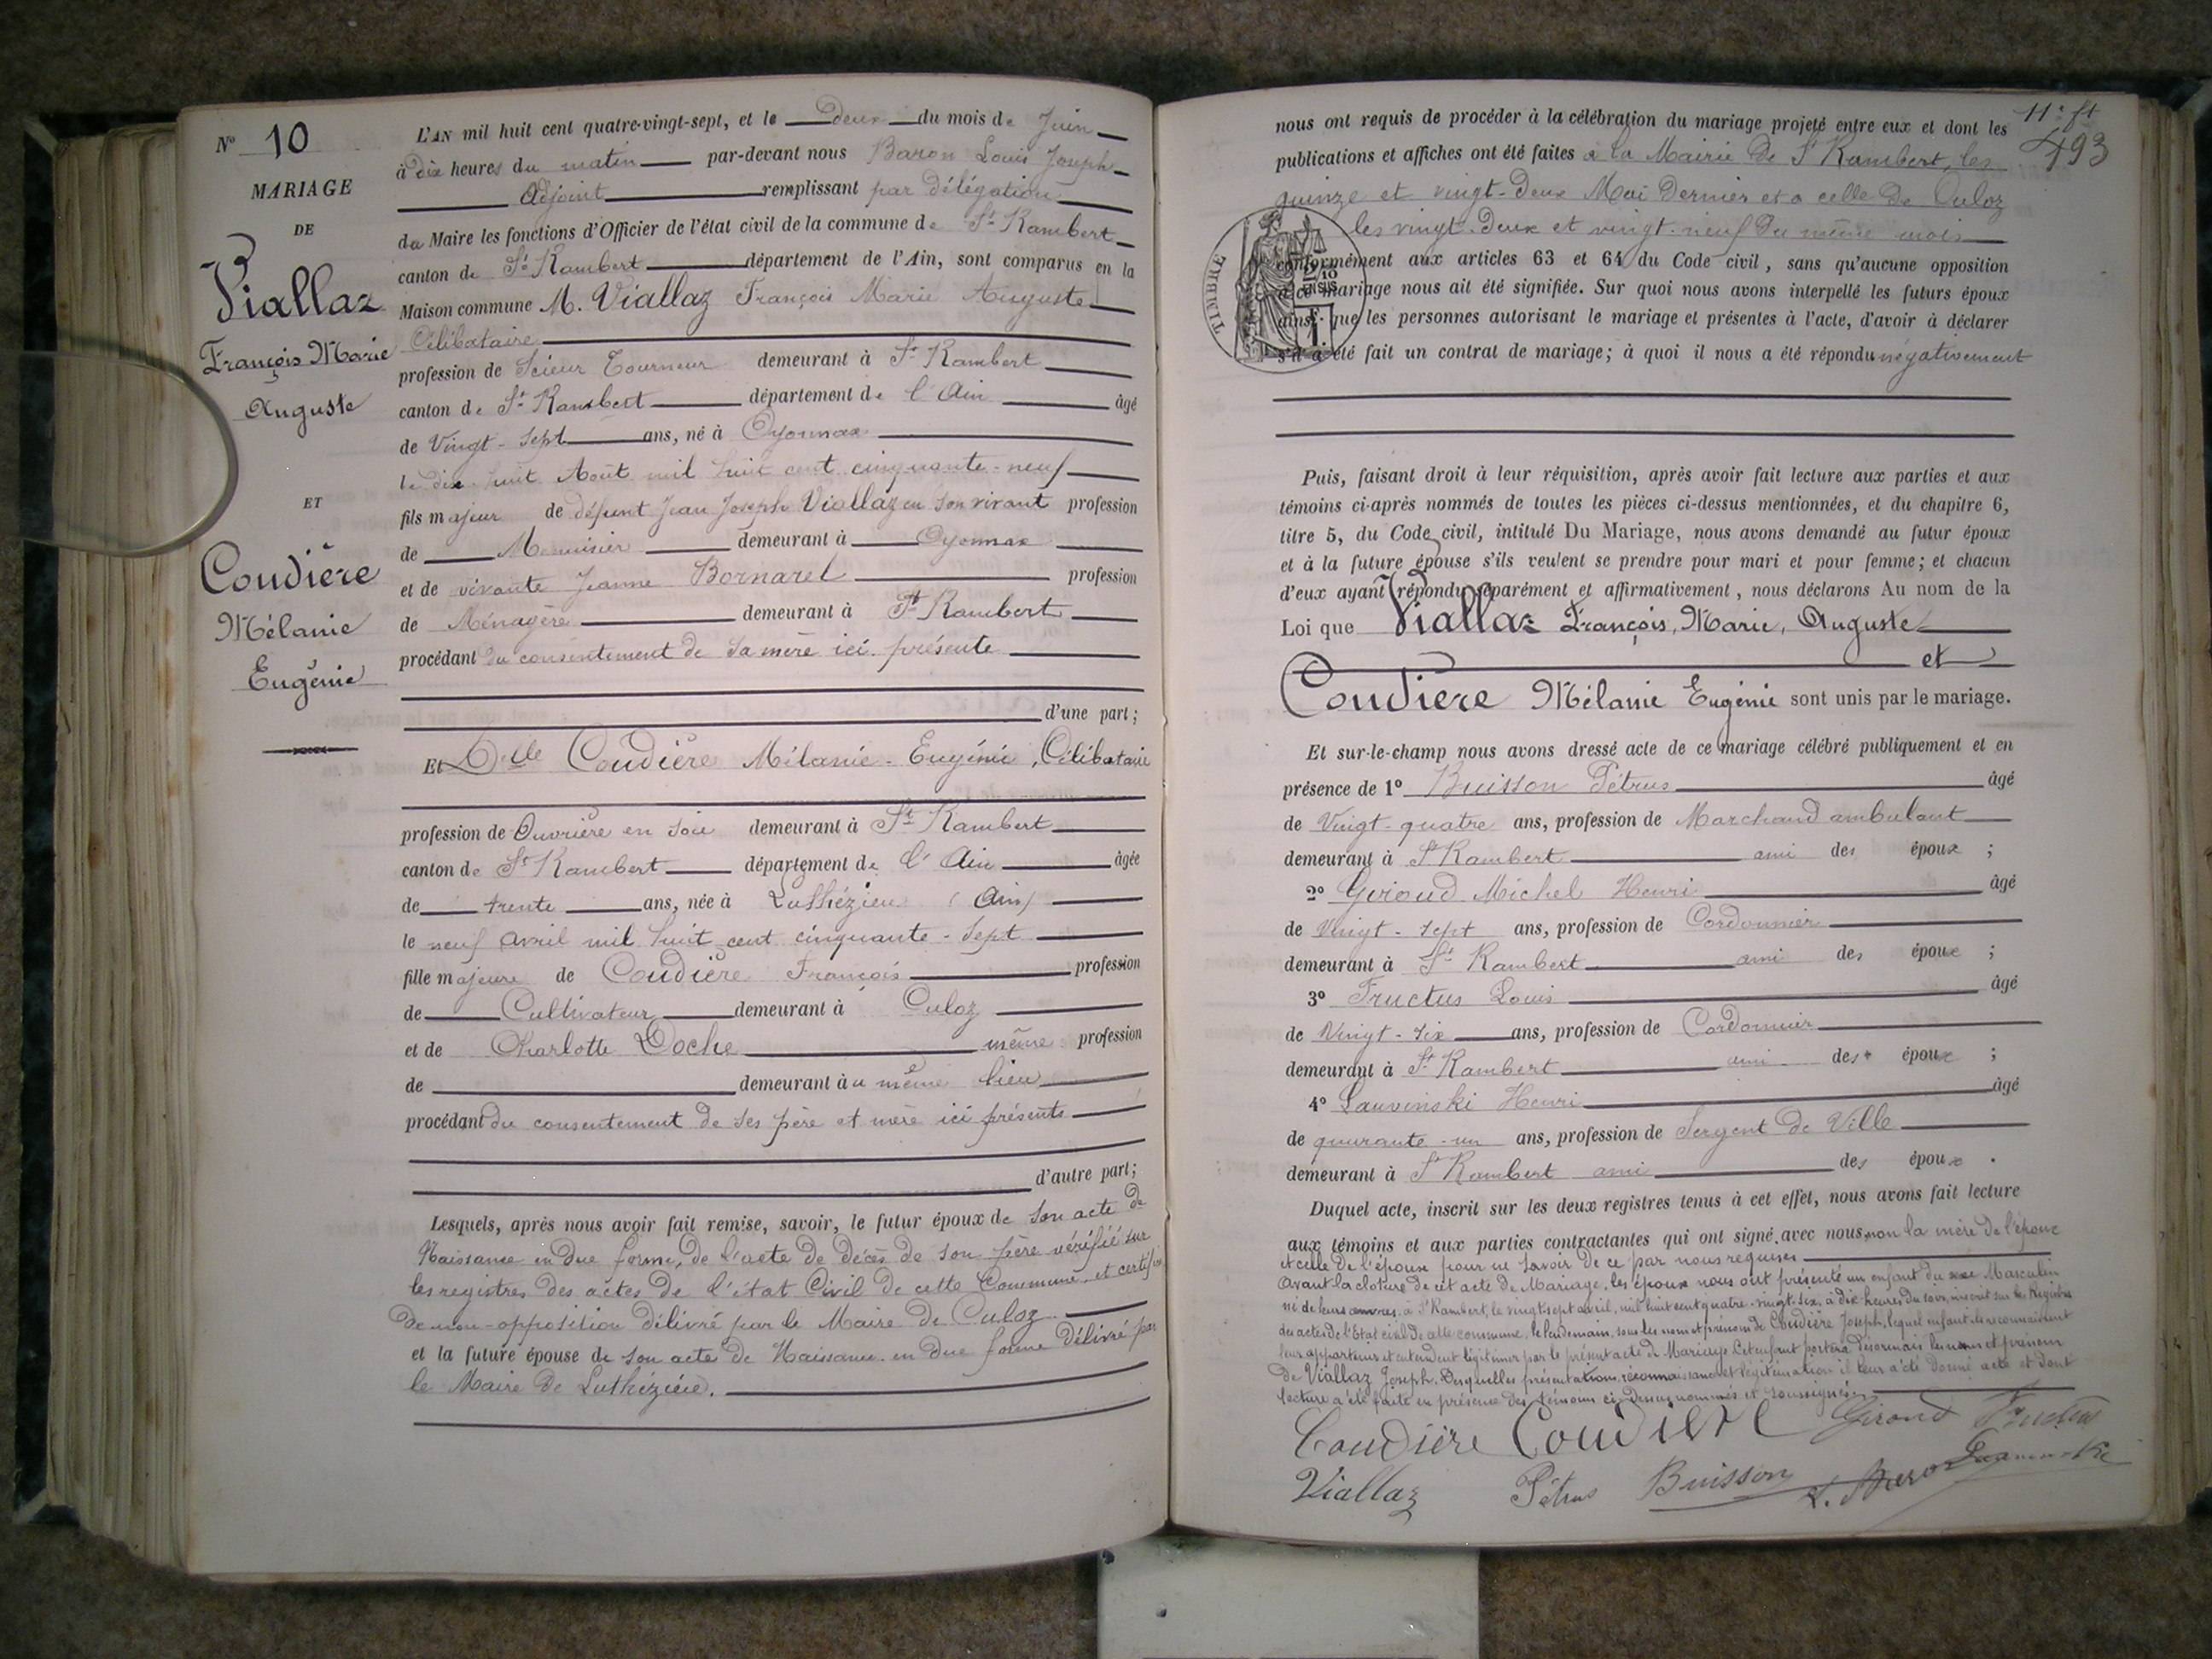 N° 10
MARIAGE
DE
Viallaz
François Marie
Auguste
ET
Coudière
Mélanie
Eugénie
L'AN mil huit cent quatre-vingt-sept, et le deux du mois de Juin
à dix heures du matin par-devant nous Baron Louis Joseph
Adjoint remplissant par délégation
du Maire les fonctions d'Officier de l'état civil de la commune de St Rambert
canton de St Rambert département de l'Ain, sont comparus en la
Maison commune M. Viallaz François Marie Auguste
Célibataire
profession de Scieur Tourneur demeurant à St Rambert
canton de St Rambert département de l'Ain âgé
de Vingt-sept ans, né à Oyonnax
le dix huit Août mil huit cent cinquante-neuf
fils majeur de défunt Jean Joseph Viallaz en son vivant profession
de Menuisier demeurant à Oyonnax
et de vivante Jeanne Bornarel profession
de Ménagère demeurant à St Rambert
procédant du consentement de sa mère ici présente
d'une part;
Et Delle Coudière Mélanie-Eugénie, Célibataire
profession de Ouvrière en soie demeurant à St Rambert
canton de St Rambert département de l'Ain âgée
de trente ans, née à Luthézieu (Ain)
le neuf avril mil huit cent cinquante-sept
fille majeure de Coudière François profession
de Cultivateur demeurant à Culoz
et de Charlotte Doche même profession
de demeurant à u même lieu
procédant du consentement de ses père et mère ici présents
d'autre part;
Lesquels, après nous avoir fait remise, savoir, le futur époux de son acte de
Naissance en due forme, de l'acte de décès de son père vérifié sur
les registres des actes de l'état Civil de cette Commune et certificat
de non-opposition délivré par le Maire de Culoz
et la future épouse de son acte de Naissance en due forme délivré par
le Maire de Luthézieu.
11e ft
493
nous ont requis de procéder à la célébration du mariage projeté entre eux et dont les
publications et affiches ont été faites à la Mairie de St Rambert, les
quinze et vingt-deux Mai dernier et à celle de Culoz
les vingt-deux et vingt-neuf du même mois
TIMBRE
conformément aux articles 63 et 64 du Code civil, sans qu'aucune opposition
à ce mariage nous ait été signifiée. Sur quoi nous avons interpellé les futurs époux
ainsi que les personnes autorisant le mariage et présentes à l'acte, d'avoir à déclarer
s'il a été fait un contrat de mariage; à quoi il nous a été répondu négativement
Puis, faisant droit à leur réquisition, après avoir fait lecture aux parties et aux
témoins ci-après nommés de toutes les pièces ci-dessus mentionnées, et du chapitre 6,
titre 5, du Code civil, intitulé Du Mariage, nous avons demandé au futur époux
et à la future épouse s'ils veulent se prendre pour mari et pour femme; et chacun
d'eux ayant répondu séparément et affirmativement, nous déclarons Au nom de la
Loi que Viallaz François, Marie, Auguste
et
Coudière Mélanie Eugénie sont unis par le mariage.
Et sur-le-champ nous avons dressé acte de ce mariage célébré publiquement et en
présence de 1° Buisson Pétrus âgé
de Vingt-quatre ans, profession de Marchand ambulant
demeurant à St Rambert ami des époux ;
2° Giroud Michel Henri âgé
de Vingt-sept ans, profession de Cordonnier
demeurant à St Rambert ami des époux ;
3° Fructus Louis âgé
de Vingt-six ans, profession de Cordonnier
demeurant à St Rambert ami des époux ;
4° Lauvinski Henri âgé
de quarante-un ans, profession de Sergent de Ville
demeurant à St Rambert ami des époux .
Duquel acte, inscrit sur les deux registres tenus à cet effet, nous avons fait lecture
aux témoins et aux parties contractantes qui ont signé avec nous, non la mère de l'époux
et celle de l'épouse pour ne savoir de ce par nous requises
Avant la cloture de cet acte de Mariage, les époux nous ont présenté un enfant du sexe Masculin
né de leurs œuvres, à St Rambert, le vingt sept avril, mil huit cent quatre-vingt-six, à dix heures du soir, inscrit sur les Registres
des actes de l'Etat civil de cette commune, le lendemain, sous les nom et prénom de Coudière Joseph, lequel enfant ils reconnaissent
leur appartenir et entendent légitimer par le présent acte de Mariage. Cet enfant portera désormais les nom et prénom
de Viallaz Joseph. Desquelles présentation, reconnaissance et légitimation il leur a été donné acte et dont
lecture a été faite en présence des témoins ci-dessus nommés et soussignés
Coudière Coudière Giroud Fructus
Viallaz Pétrus Buisson L. Baron